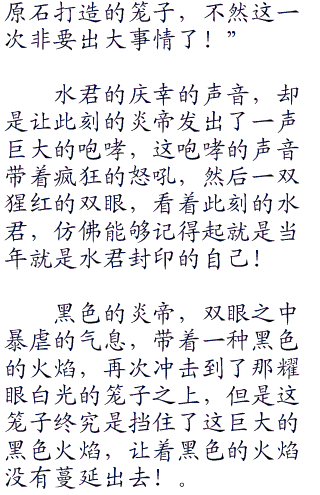 原石打造的笼子，不然这一
次非要出大事情了！”
水君的庆幸的声音，却
是让此刻的炎帝发出了一声
巨大的咆哮，这咆哮的声音
带着疯狂的怒吼，然后一双
猩红的双眼，看着此刻的水
君，仿佛能够记得起就是当
年就是水君封印的自己！
黑色的炎帝，双眼之中
暴虐的气息，带着一种黑色
的火焰，再次冲击到了那耀
眼白光的笼子之上，但是这
笼子终究是挡住了这巨大的
黑色火焰，让着黑色的火焰
没有蔓延出去！。